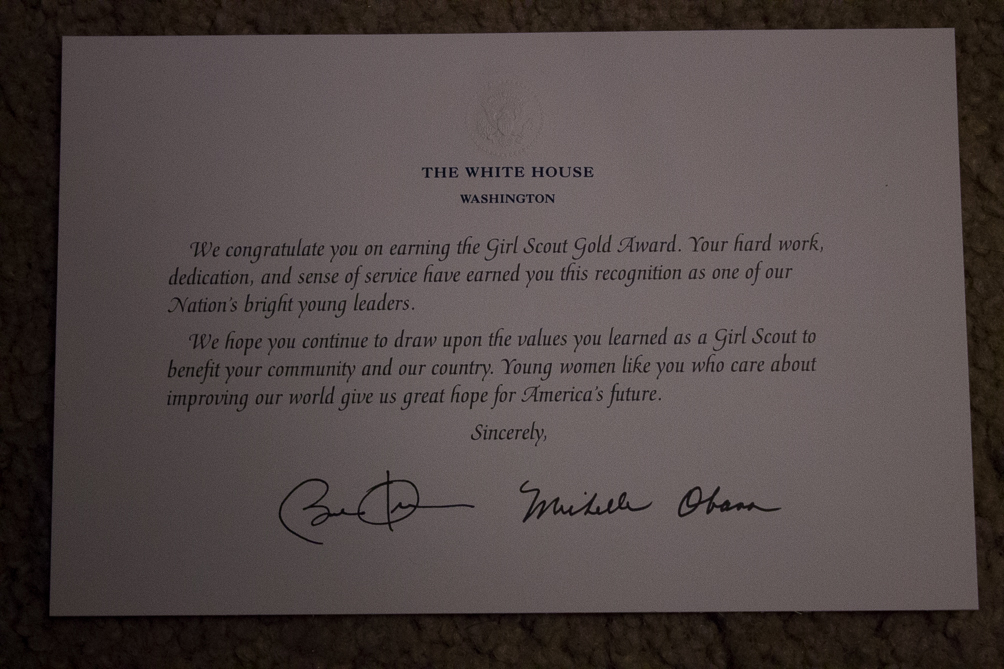 THE WHITE HOUSE
WASHINGTON
We congratulate you on earning the Girl Scout Gold Award. Your hard work,
dedication, and sense of service have earned you this recognition as one of our
Nation's bright young leaders.
We hope you continue to draw upon the values you learned as a Girl Scout to
benefit your community and our country. Young women like you who care about
improving our world give us great hope for America's future.
Sincerely,
Michelle Obama